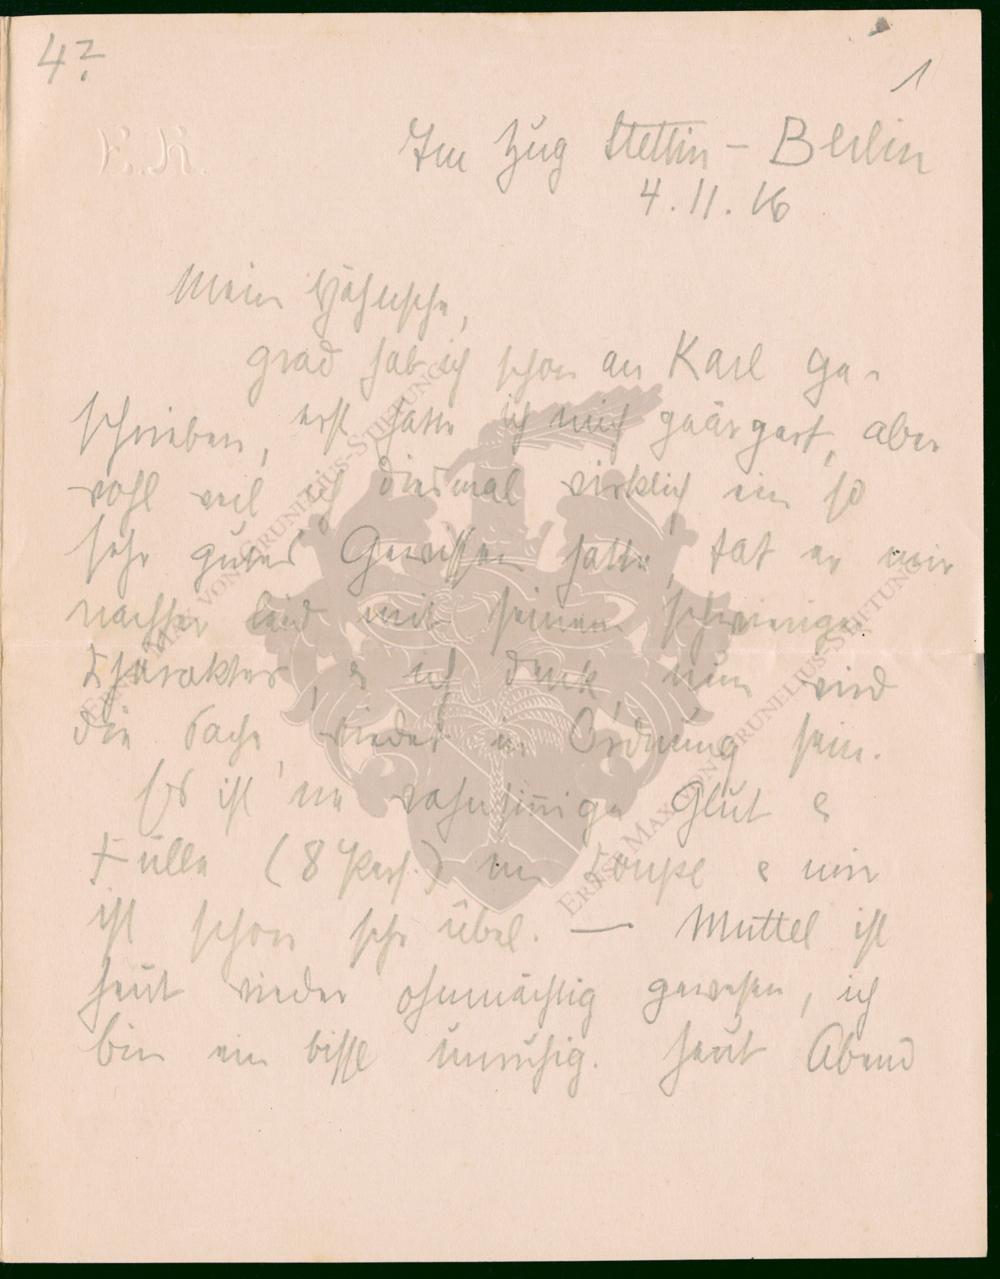 42
1
Im Zug Stettin – Berlin
4.11.16
Mein Höhnsche,
grad hab ich schon an Karl ge-
schrieben, erst hatte ich mich geärgert, aber
wohl weil ich diesmal wirklich ein so
sehr gutes Gewissen hatte, tat er mir
nachher leid mit seinem schwierigen
Charakter, & ich denk nun wird
die Sache wieder in Ordnung sein.
Es ist ne wahnsinnige Glut &
Fülle (8 Pers.) im Coupé & mir
ist schon sehr übel. — Muttel ist
heut wieder ohnmächtig gewesen, ich
bin ein bissl unruhig. Heut Abend
ERNST MAX VON GRUNELIUS-STIFTUNG
ERNST MAX VON GRUNELIUS-STIFTUNG